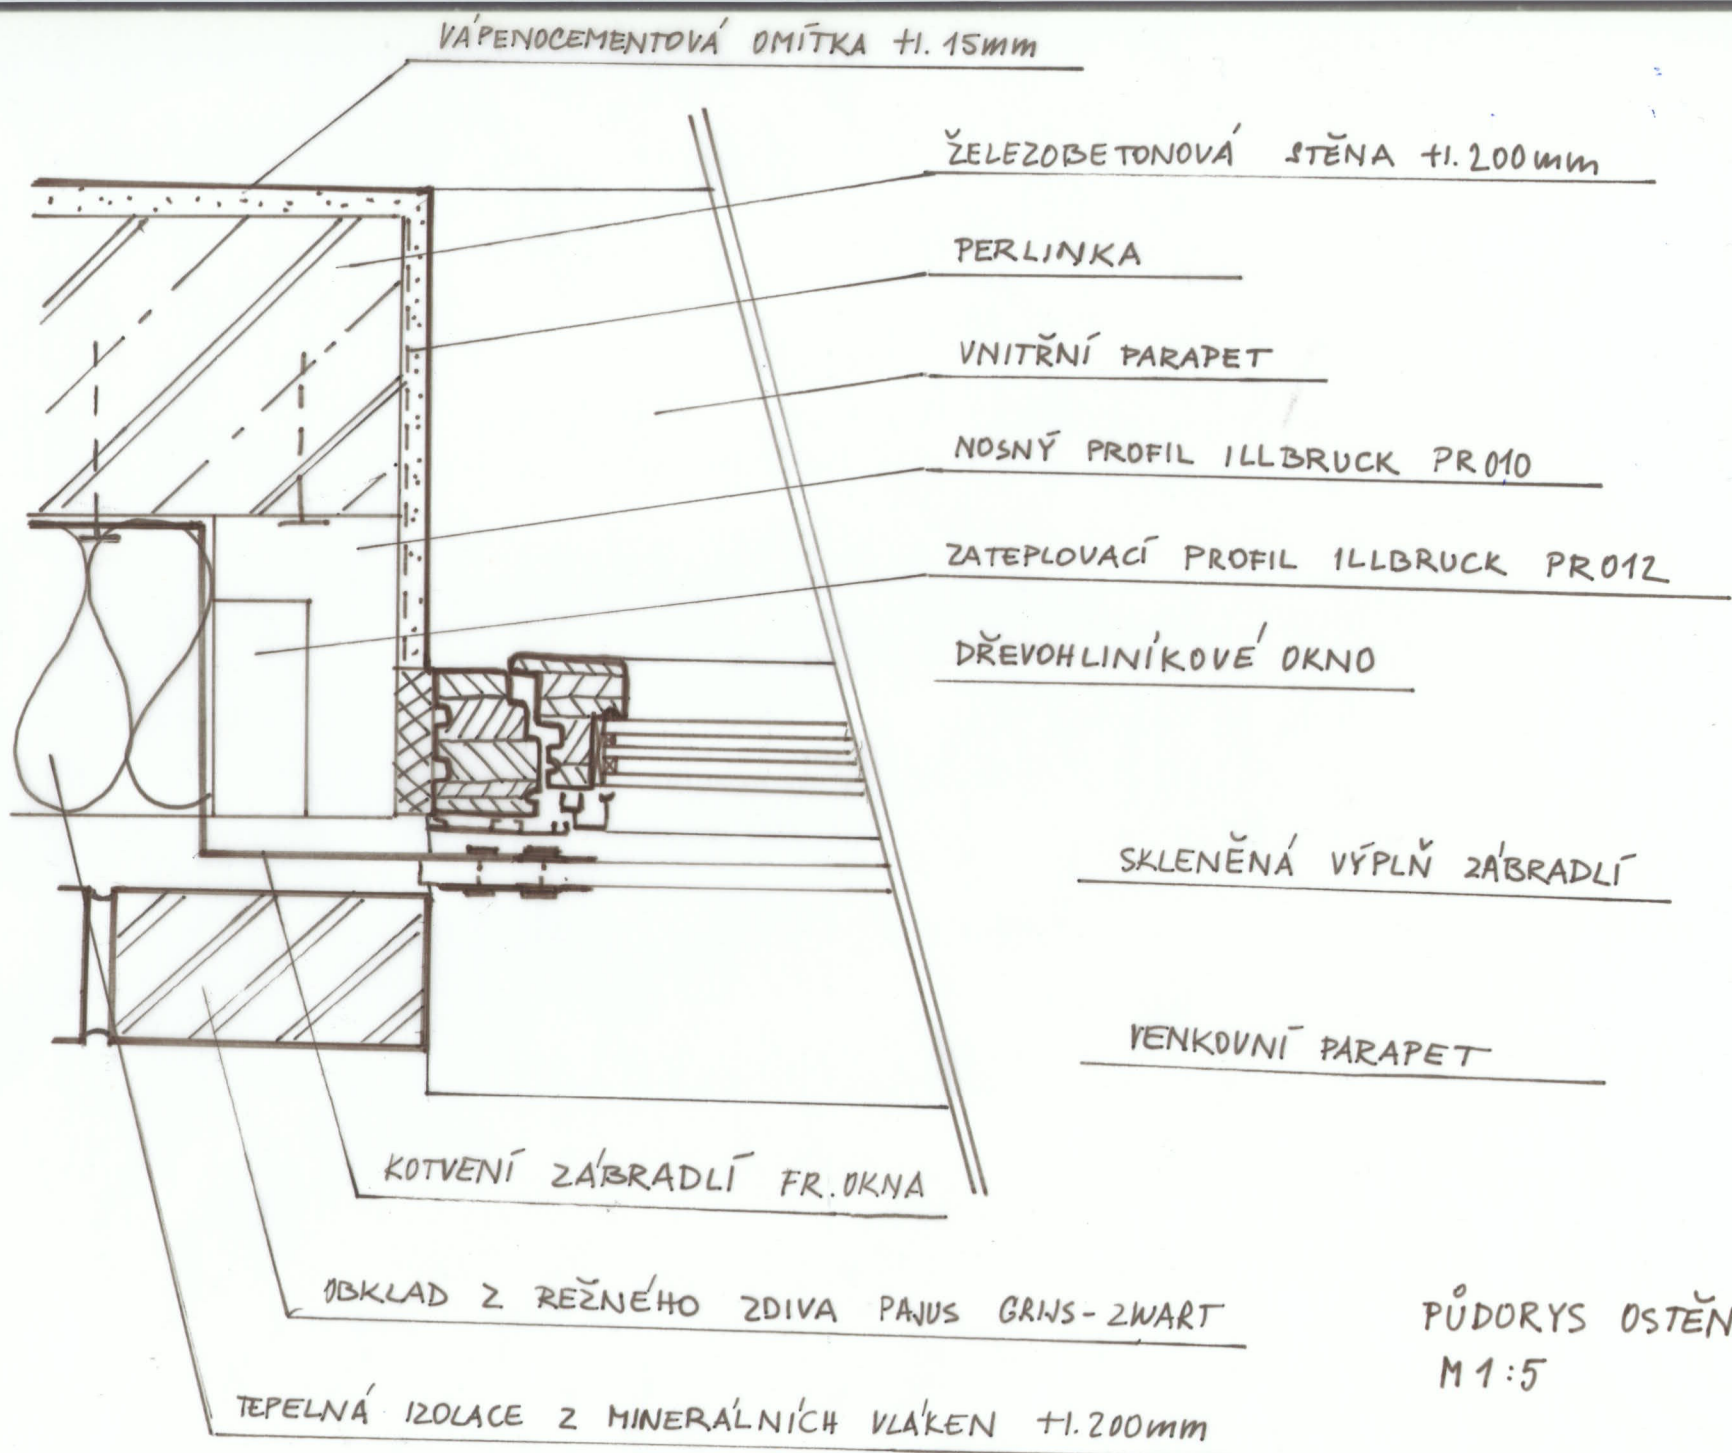 VÁPENOCEMENTOVÁ OMÍTKA tl. 15mm
ŽELEZOBETONOVÁ STĚNA tl. 200mm
PERLINKA
VNITŘNÍ PARAPET
NOSNÝ PROFIL ILLBRUCK PR010
ZATEPLOVACÍ PROFIL ILLBRUCK PR012
DŘEVOHLINÍKOVÉ OKNO
SKLENĚNÁ VÝPLŇ ZÁBRADLÍ
VENKOVNÍ PARAPET
KOTVENÍ ZÁBRADLÍ FR. OKNA
OBKLAD Z REŽNÉHO ZDIVA PAJUS GRIJS-ZWART
TEPELNÁ IZOLACE Z MINERÁLNÍCH VLÁKEN tl. 200mm
PŮDORYS OSTĚN
M 1:5